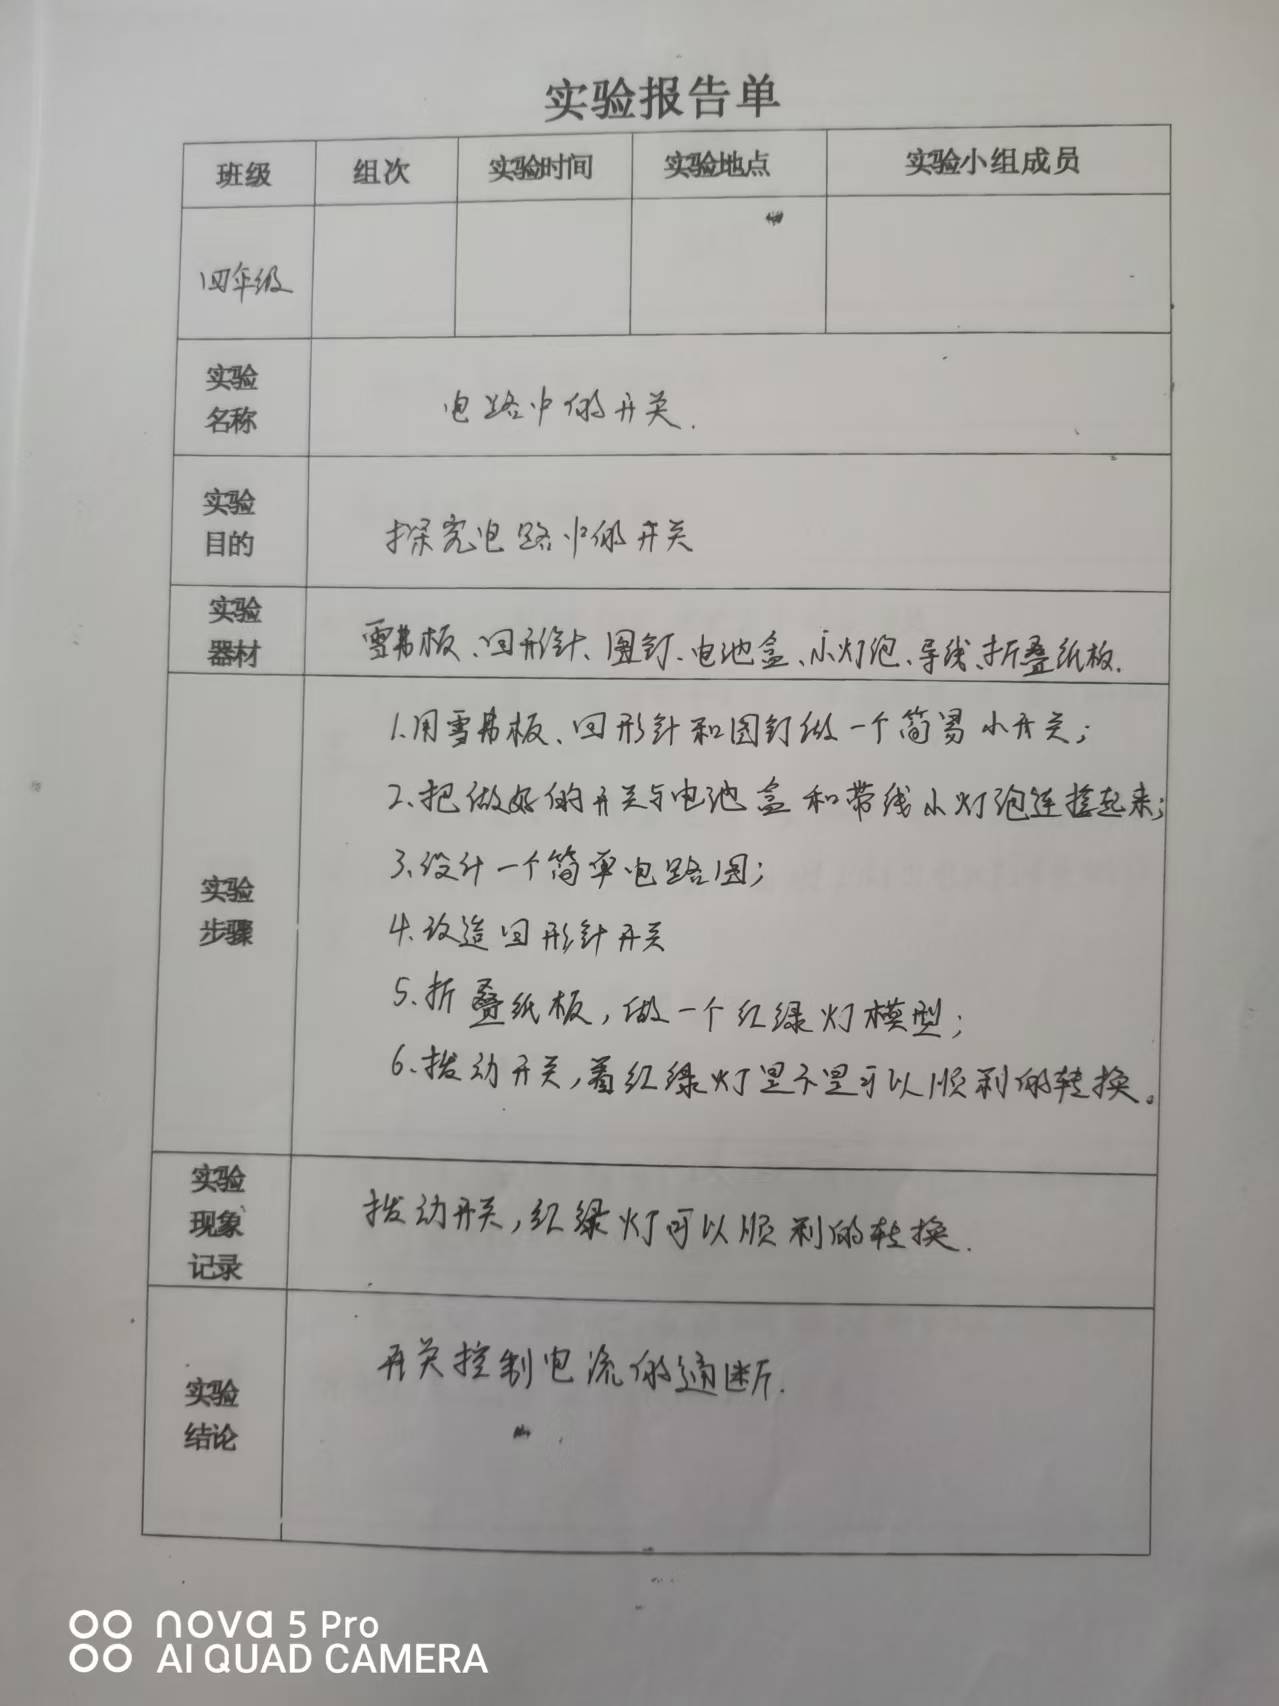 实验报告单
班级 组次 实验时间 实验地点 实验小组成员
四年级
实验
名称
电路中的开关.
实验
目的
探究电路中的开关
实验
器材
雪弗板、回形针、图钉、电池盒、小灯泡、导线、折叠纸板.
实验
步骤
1.用雪弗板、回形针和图钉做一个简易小开关;
2.把做好的开关与电池盒和带线小灯泡连接起来;
3.设计一个简单电路图;
4.改造回形针开关
5.折叠纸板,做一个红绿灯模型;
6.拨动开关,看红绿灯是不是可以顺利的转换。
实验
现象
记录
拨动开关,红绿灯可以顺利的转换.
实验
结论
开关控制电流的通断.
nova 5 Pro
AI QUAD CAMERA